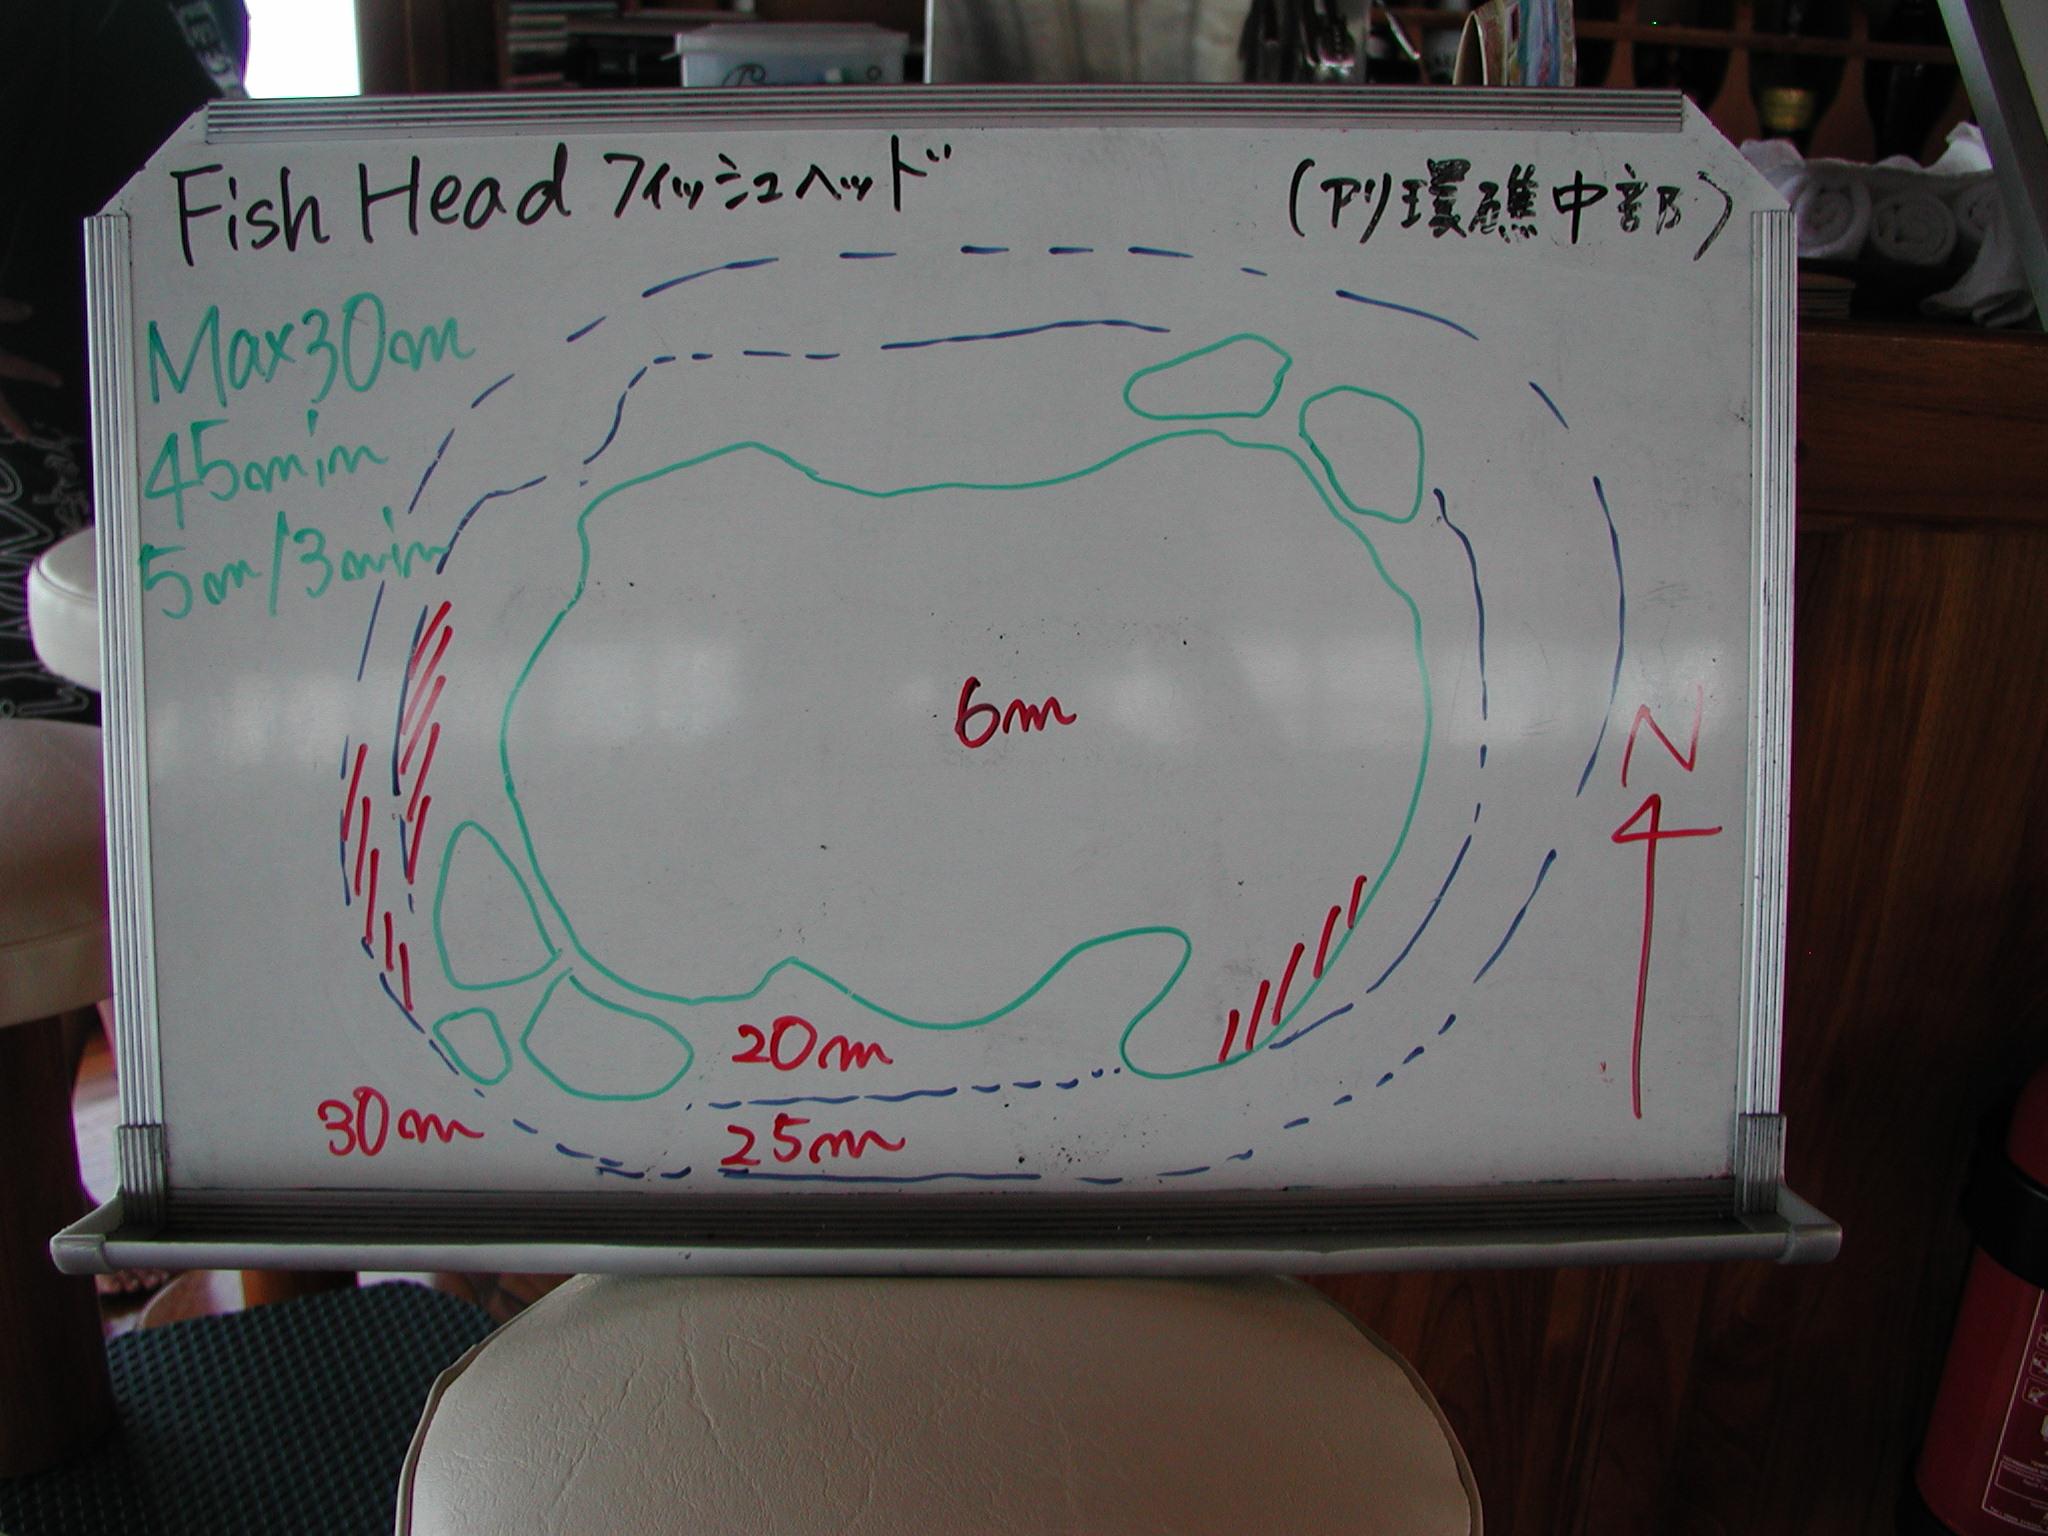 Fish Head フィッシュヘッド
(アリ環礁中部)
Max30m
45min
5m/3min
6m
N
20m
30m
25m